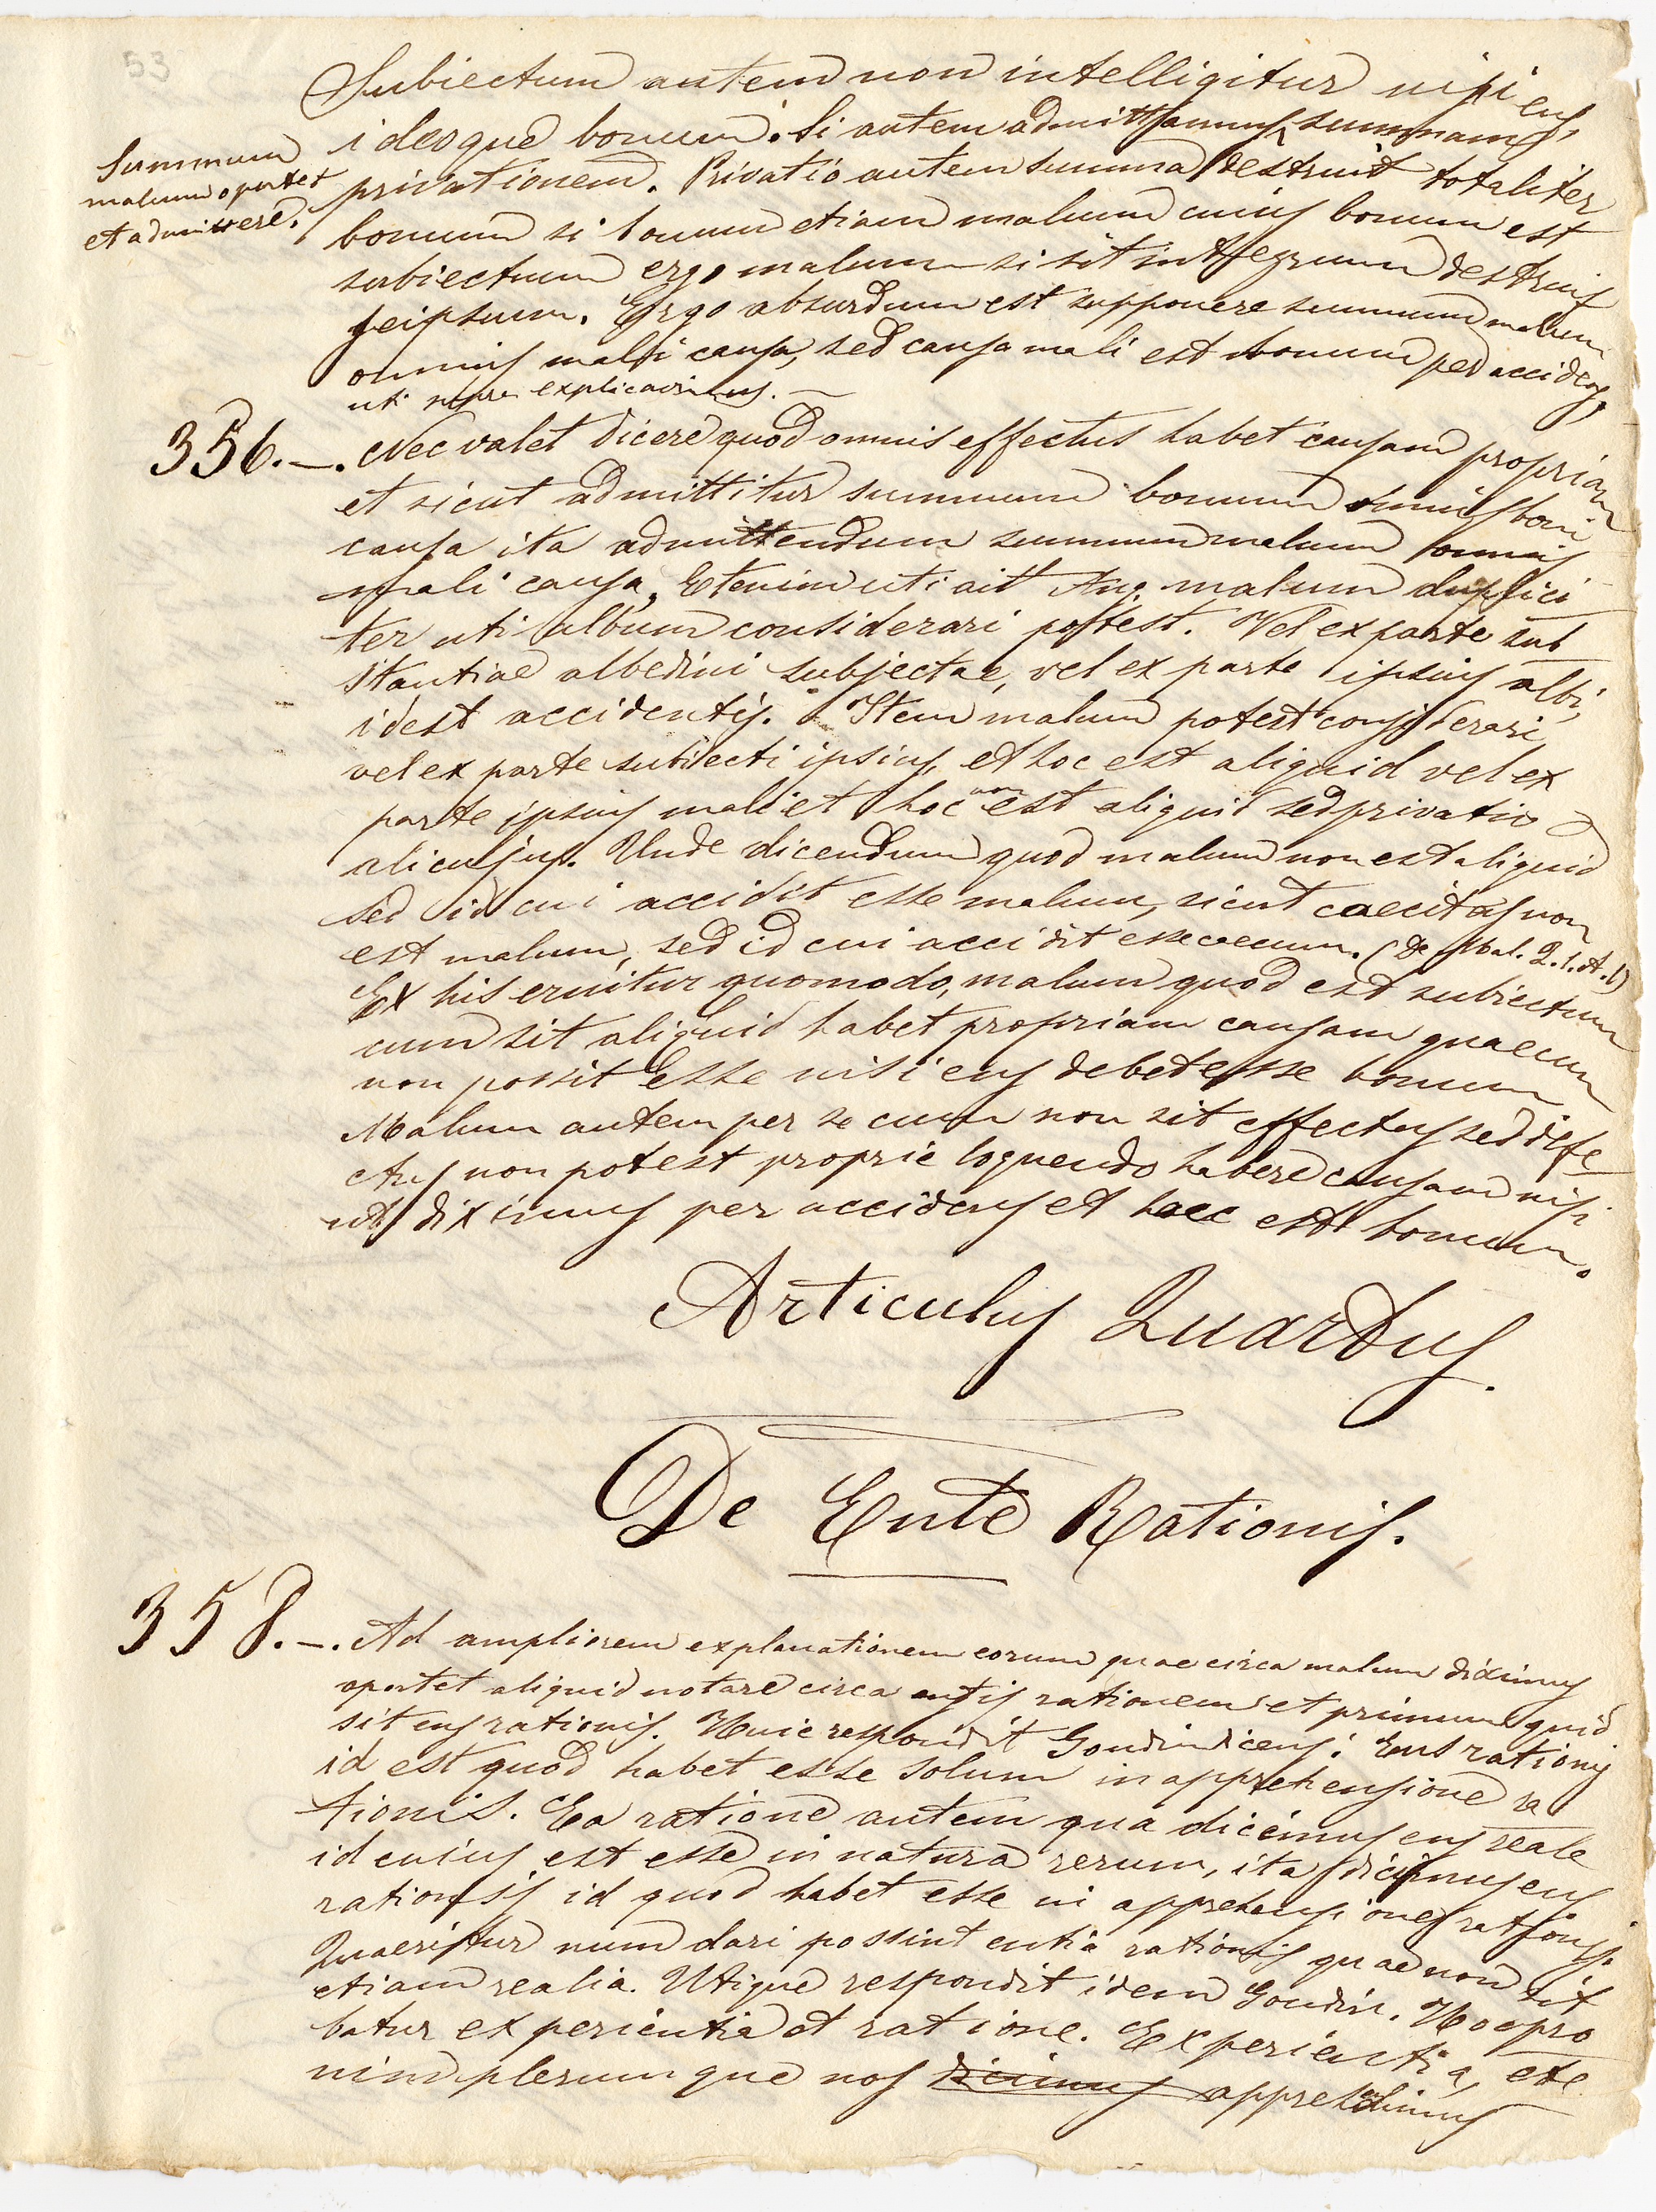 53
Subiectum autem non intelligitur nisi ens,
ideoque bonum. Si autem admittamus summam
Summum
malum oportet
et admittere.
privationem. Privatio autem summa destruit totaliter
bonum si bonum etiam malum cuius bonum est
subiectum ergo malum si sit integrum destruit
seipsum. Ergo absurdum est supponere summum malum
omnis mali causa, sed causa mali est bonum per accidens,
uti supra explicavimus. —
356.—. Nec valet dicere quod omnis effectus habet causam propriam
et sicut admittitur summum bonum omnis boni
causa ita admittendum summum malum omnis
mali causa, Etenim uti ait Ang. malum duplici
ter uti album considerari potest. Vel ex parte sub
stantiae albedini subjectae, vel ex parte ipsius albi,
idest accidentis. Item malum potest considerari
vel ex parte subiecti ipsius, et hoc est aliquid vel ex
parte ipsius mali et hoc non est aliquid sed privatio
alicujus. Unde dicendum quod malum non est aliquid
sed id cui accidit esse malum, sicut caecitas non
est malum, sed id cui accidit esse caecum. (De Mal. Q.1.A.1)
Ex his eruitur quomodo, malum quod est subiectum
cum sit aliquid habet propriam causam quae cum
non possit esse nisi ens debet esse bonum
Malum autem per se cum non sit effectus sed defe
ctus non potest proprie loquendo habere causam nisi
ut diximus per accidens et haec est bonum.
Articulus Quartus.
De Ente Rationis.
358.—. Ad ampliorem explanationem eorum quae circa malum diximus
oportet aliquid notare circa entis rationem et primum quid
sit ens rationis. Huic respondit Goudin dicens: Ens rationis
id est quod habet esse solum in apprehensione ra
tionis. Ea ratione autem qua dicimus ens reale
id cuius est esse in natura rerum, ita dicimus ens
rationis id quod habet esse in apprehensione rationis.
Quaeritur num dari possint entia rationis quae non sit
etiam realia. Utique respondit idem Goudin. Hoc pro
batur experientia et ratione. Experientia, ete
nim plerumque nos dicimus apprehendimus